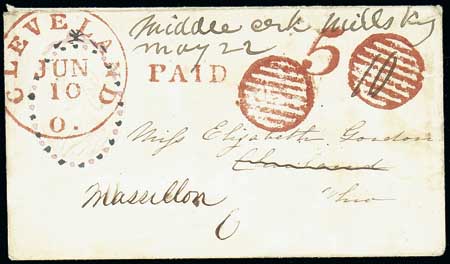 Middle ork Mills Ky
May 22
CLEVELAND
JUN
10
O.
PAID
5
10
Miss Elizabeth Gordon
Cleaveland
Ohio
Massillon
6